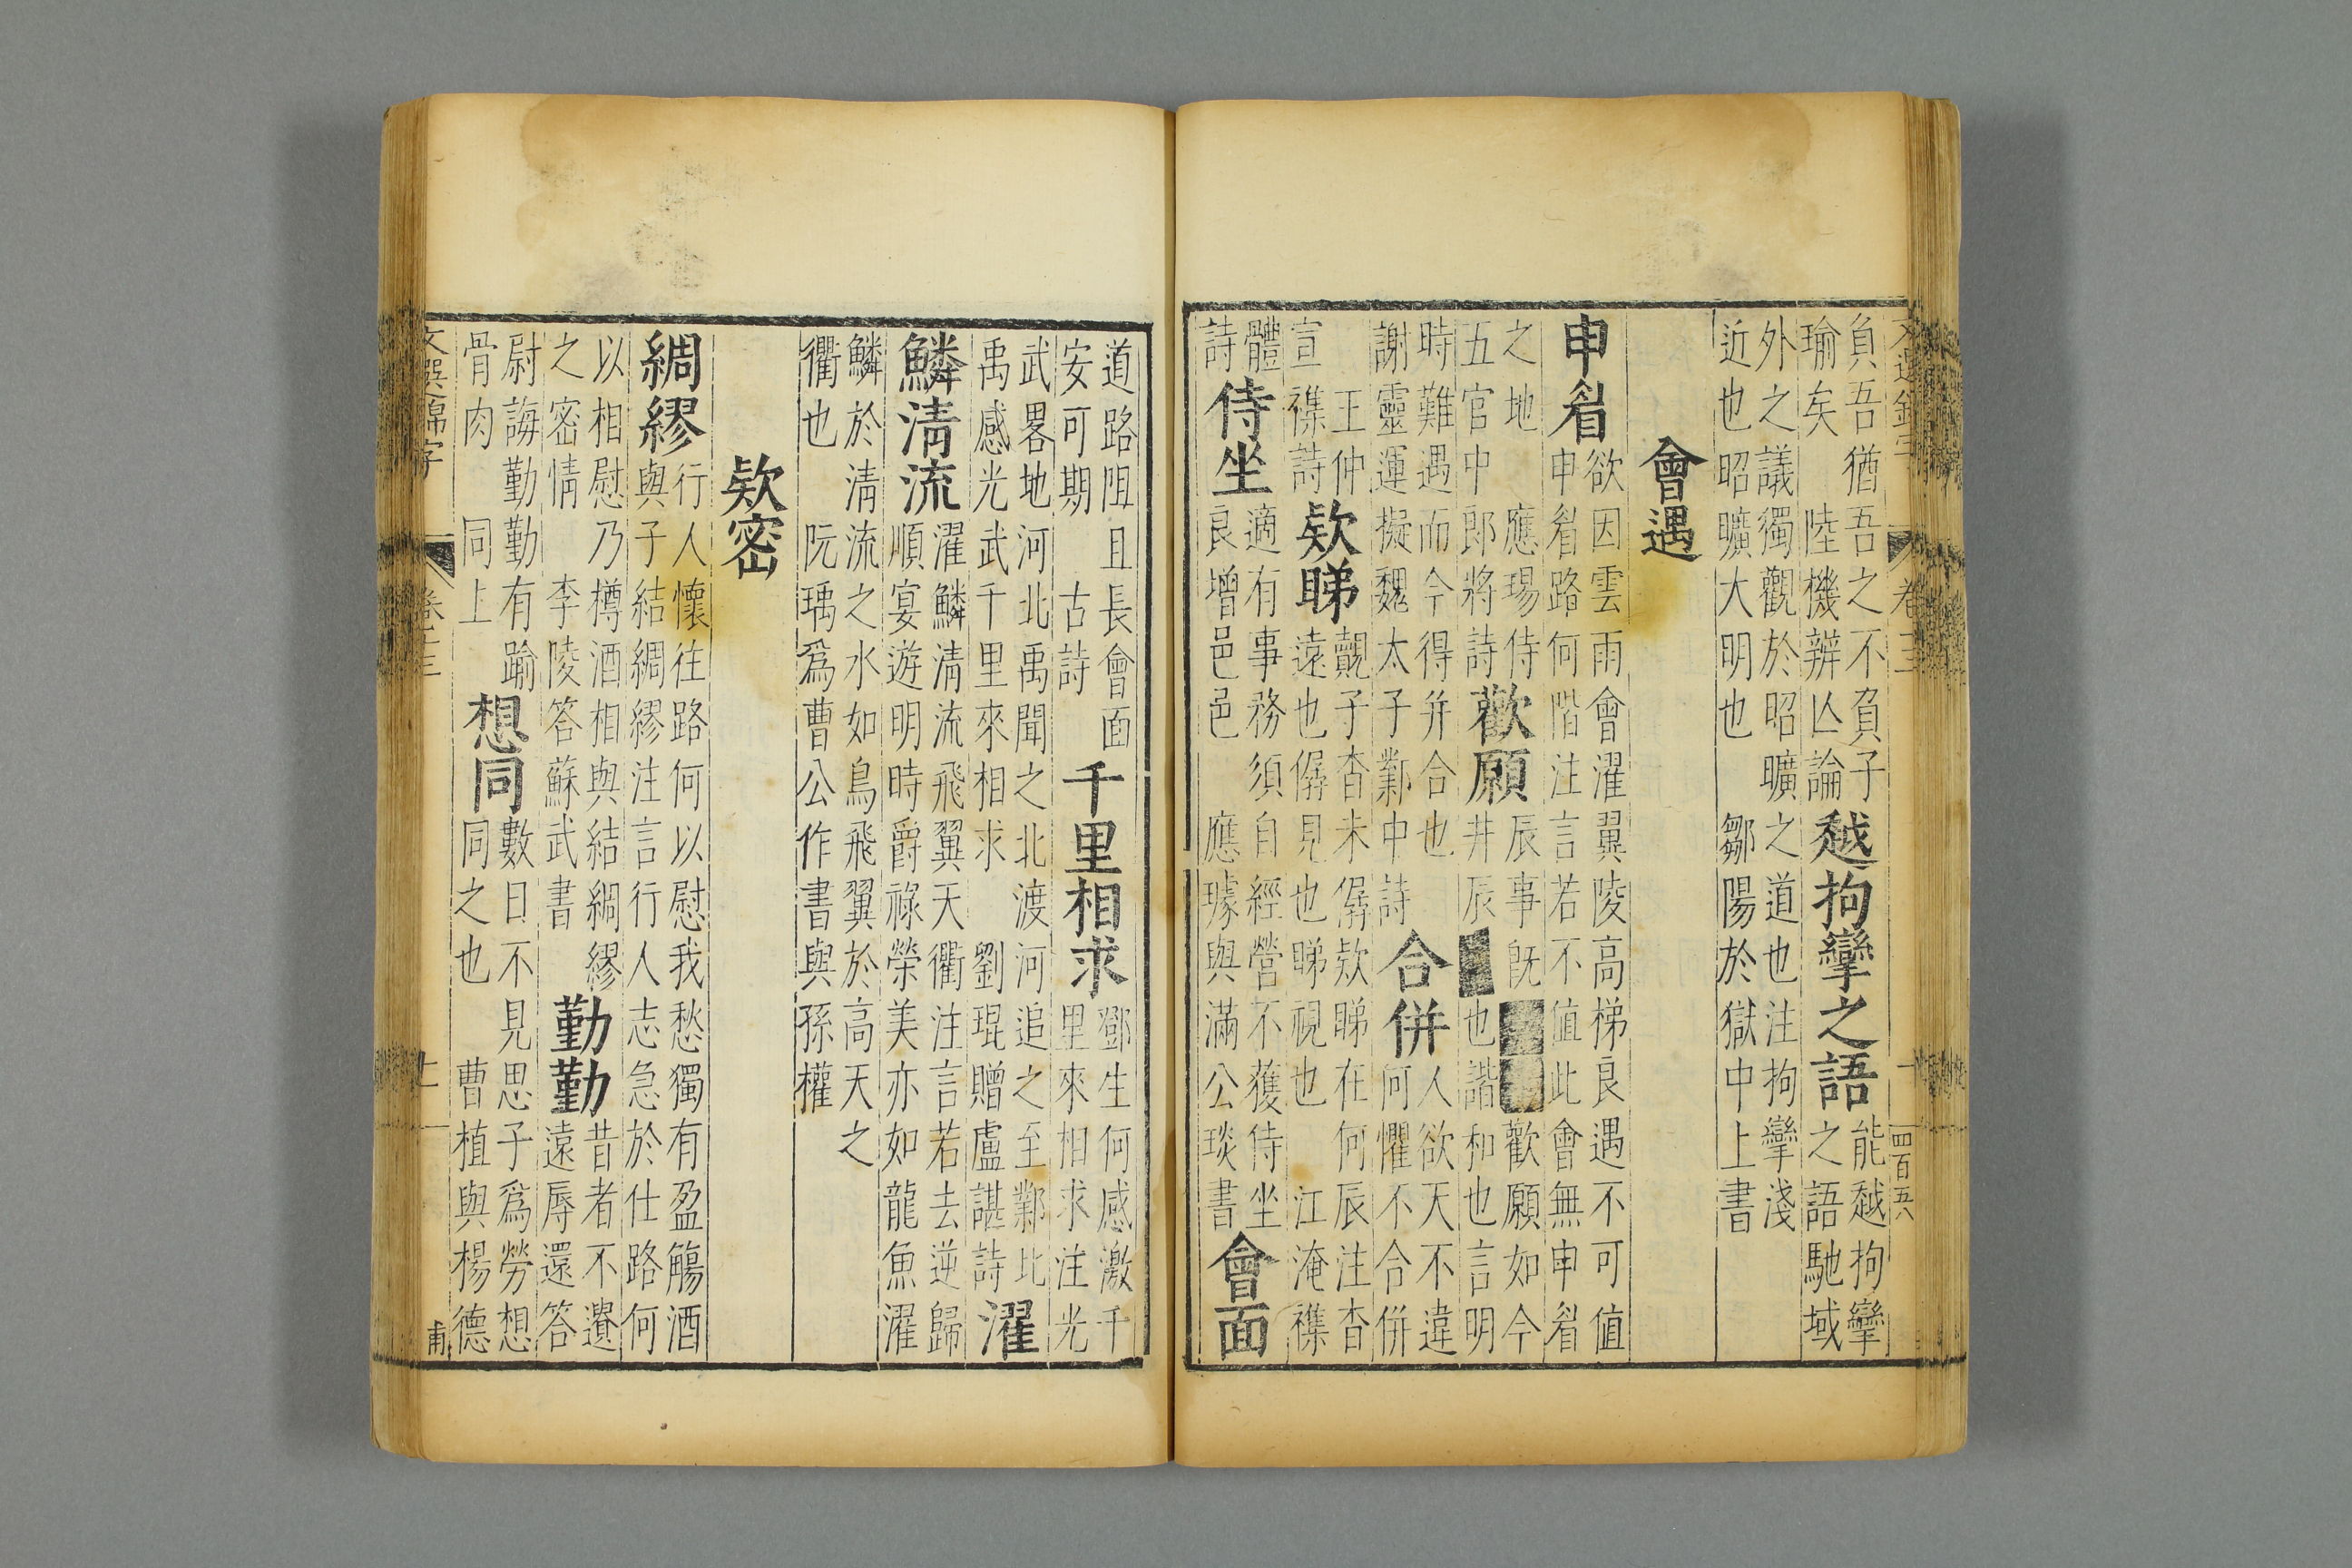 負吾猶吾之不負子
瑜矣 陸機辨亾論
越拘攣之語
能越拘攣
之語馳域
外之議獨觀於昭曠之道也注拘攣淺
近也昭曠大明也 鄒陽於獄中上書
會遇
申眉
欲因雲雨會濯翼陵高梯良遇不可值
申眉路何階注言若不值此會無申眉
之地 應瑒侍
五官中郎將詩
歡願
辰事既 歡願如今
井辰 也諧和也言明
時難遇而今得并合也
謝靈運擬魏太子鄴中詩
合併
人欲天不違
何懼不合併
王仲
宣襍詩
欵睇
覿子杳未僝欵睇在何辰注杳
遠也僝見也睇視也 江淹襍
體
詩
侍坐
適有事務須自經營不獲侍坐
良增邑邑 應璩與滿公琰書
會面
道路阻且長會面
安可期 古詩
千里相求
鄧生何感激千
里來相求注光
武畧地河北禹聞之北渡河追之至鄴比
禹感光武千里來相求 劉琨贈盧諶詩
濯
鱗淸流
濯鱗淸流飛翼天衢注言若去逆歸
順宴遊明時爵祿榮美亦如龍魚濯
鱗於淸流之水如鳥飛翼於高天之
衢也 阮瑀爲曹公作書與孫權
欵密
綢繆
行人懷往路何以慰我愁獨有盈觴酒
與子結綢繆注言行人志急於仕路何
以相慰乃樽酒相與結綢繆
之密情 李陵答蘇武書
勤勤
昔者不遺
遠辱還答
尉誨勤勤有踰
骨肉 同上
想同
數日不見思子爲勞想
同之也 曹植與楊德
文選錦字
卷
四百五六
甫